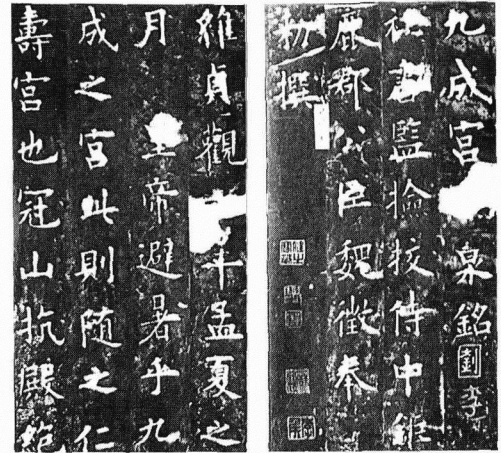 九成宮泉銘劉李
秘書監撿挍侍中鉅
鹿郡公臣魏徵奉
勑撰
維貞觀年孟夏之
月皇帝避暑乎九
成之宮此則随之仁
壽宮也冠山抗殿絕